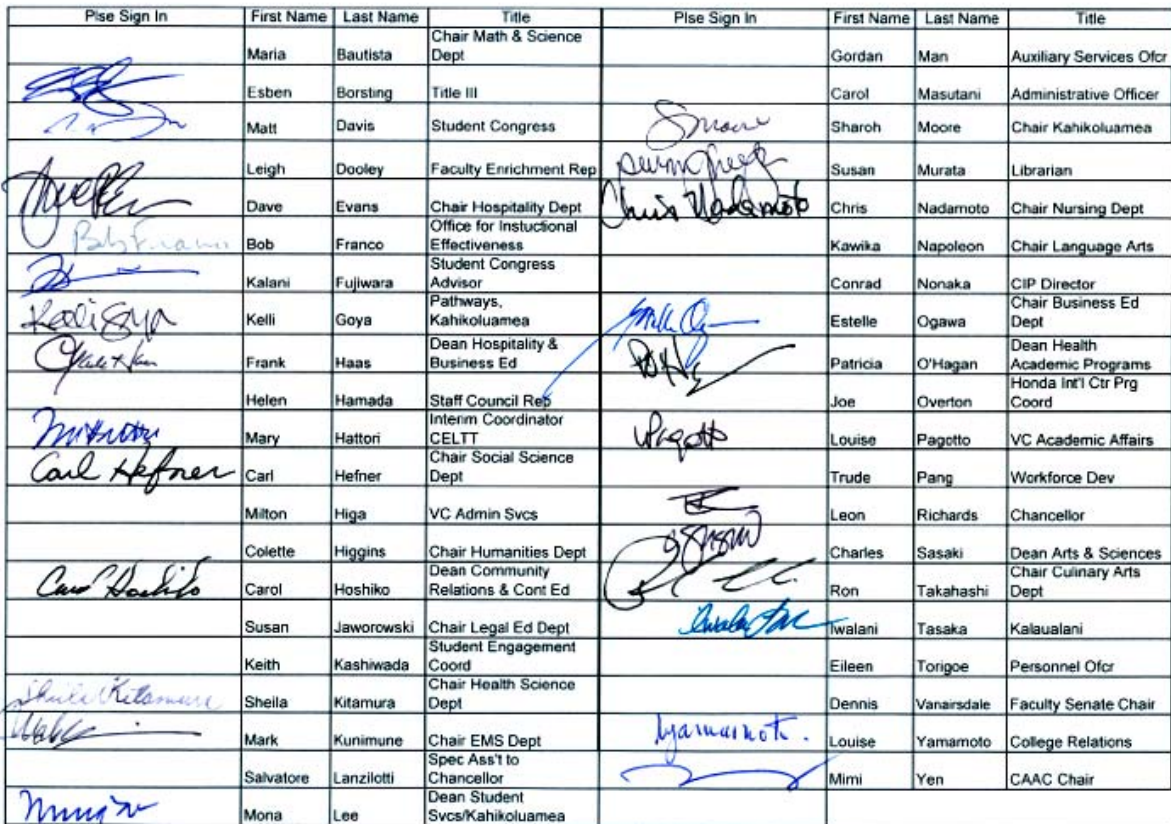 Plse Sign In First Name Last Name Title
Maria Bautista Chair Math & Science Dept
Esben Borsting Title III
Matt Davis Student Congress
Leigh Dooley Faculty Enrichment Rep
Dave Evans Chair Hospitality Dept
Bob Franco Bob Franco Office for Instuctional Effectiveness
Kalani Fujiwara Student Congress Advisor
Kelli Goya Kelli Goya Pathways, Kahikoluamea
Frank Haas Dean Hospitality & Business Ed
Helen Hamada Staff Council Rep
Mary Hattori Interim Coordinator CELTT
Carl Hefner Carl Hefner Chair Social Science Dept
Milton Higa VC Admin Svcs
Colette Higgins Chair Humanities Dept
Carol Hoshiko Carol Hoshiko Dean Community Relations & Cont Ed
Susan Jaworowski Chair Legal Ed Dept
Keith Kashiwada Student Engagement Coord
Sheila Kitamura Sheila Kitamura Chair Health Science Dept
Mark Kunimune Chair EMS Dept
Salvatore Lanzilotti Spec Ass't to Chancellor
Mona Lee Dean Student Svcs/Kahikoluamea
Plse Sign In First Name Last Name Title
Gordan Man Auxiliary Services Ofcr
Carol Masutani Administrative Officer
SMoore Sharoh Moore Chair Kahikoluamea
Susan Murata Librarian
Chris Nadamoto Chris Nadamoto Chair Nursing Dept
Kawika Napoleon Chair Language Arts
Conrad Nonaka CIP Director
Estelle Ogawa Chair Business Ed Dept
Patricia O'Hagan Dean Health Academic Programs
Joe Overton Honda Int'l Ctr Prg Coord
LPagotto Louise Pagotto VC Academic Affairs
Trude Pang Workforce Dev
Leon Richards Chancellor
Charles Sasaki Dean Arts & Sciences
Ron Takahashi Chair Culinary Arts Dept
Iwalani Tasaka Kalaualani
Eileen Torigoe Personnel Ofcr
Dennis Vanairsdale Faculty Senate Chair
lyamamoto. Louise Yamamoto College Relations
Mimi Yen CAAC Chair